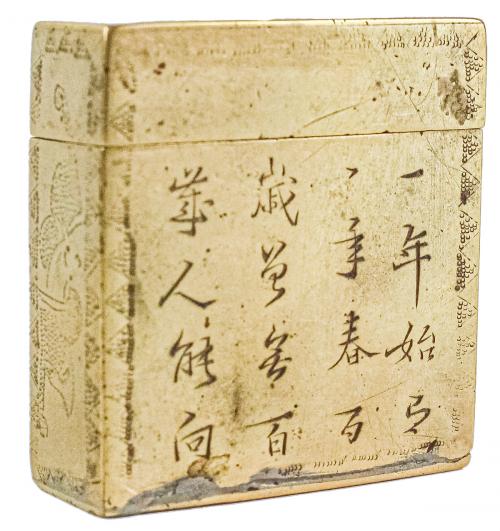 一年始有
一年春百
歲曾無百
歲人能向